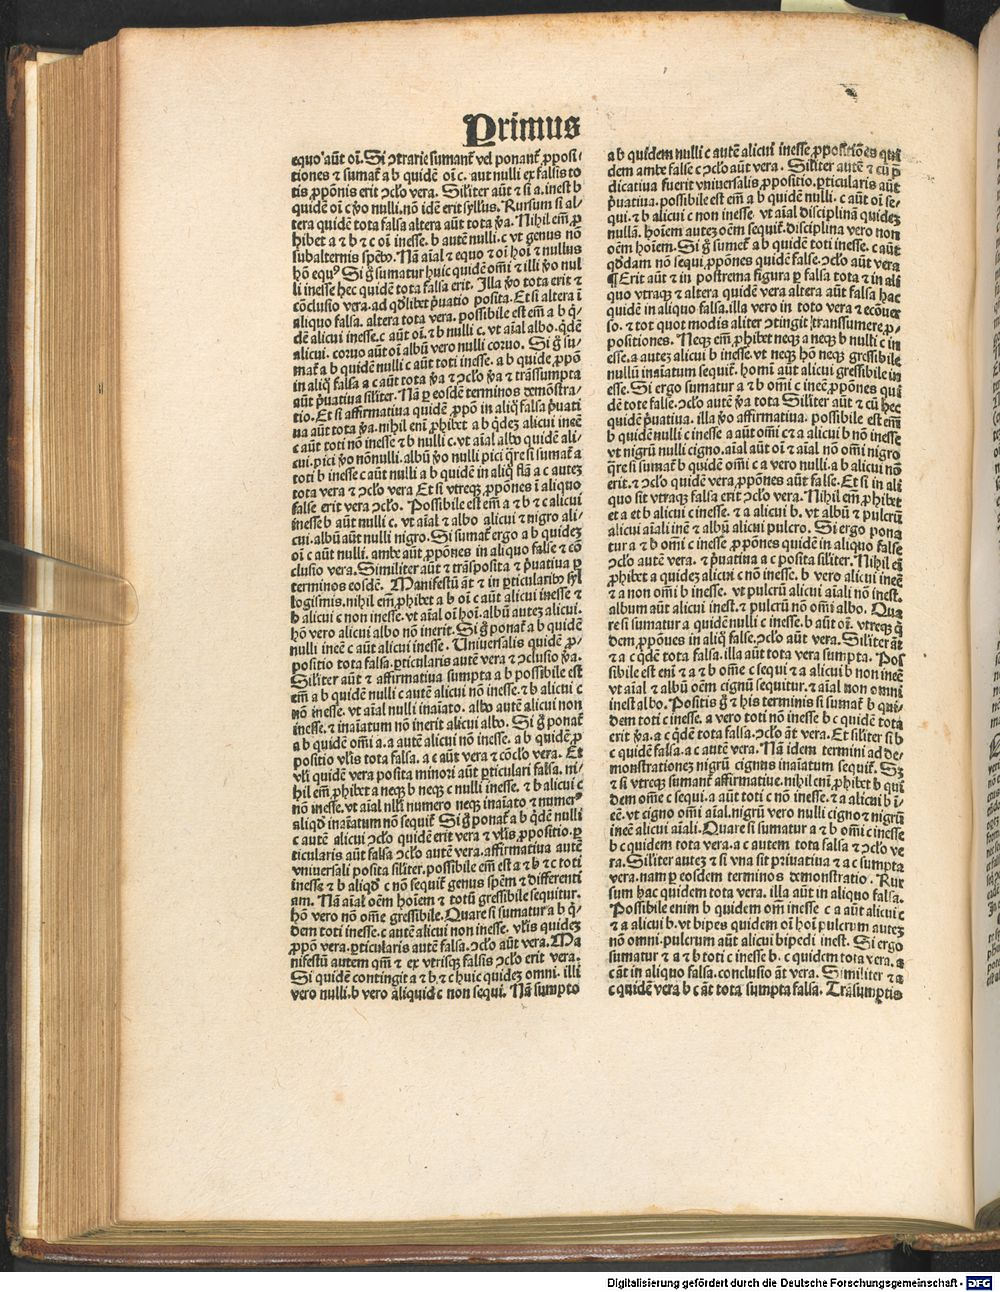 Primus
equo aūt oī. Si ɔtrarie sumant᷑ vel ponant᷑ ꝓposi⸗
tiones ⁊ sumat᷑ a b quidē oī c. aut nulli ex falsis to
tis ꝓpōnis erit ɔclo vera. Siliter aūt ⁊ si a. inest b
quidē oī c ṽo nulli. nō idē erit syllus. Rursum si al⸗
tera quidē tota falsa altera aūt tota ṽa. Nihil em̄ ꝓ
hibet a ⁊ b ⁊ c oī inesse. b autē nulli. c vt genus nō
subalternis spēb⁹. Nā aīal ⁊ equo ⁊ oī hoī ⁊ nullus
hō equ⁹ Si g̊ sumatur huic quidē omī ⁊ illi ṽo nul
li inesse hec quidē tota falsa erit. Illa ṽo tota erit ⁊
cōclusio vera. ad qd̄libet p̄uatio posita. Et si altera ī
aliquo falsa. altera tota vera. possibile est em̄ a b q̇⸗
dē alicui inesse. c aūt oī. ⁊ b nulli c. vt aīal albo. q̇dē
alicui. coruo aūt oī albū vero nulli coruo. Si g̊ su⸗
mat᷑ a b quidē nulli c aūt toti inesse. a b quidē ꝓpō
in aliq̊ falsa a c aūt tota ṽa ⁊ ɔclo ṽa ⁊ trāssumpta
aūt p̄uatiua siliter. Nā ꝑ eosdē terminos demōstra⸗
tio. Et si affirmatiua quidē ꝓpō in aliq̊ falsa p̄uati
ua aūt tota ṽa. nihil enī ꝓhibet a b q̇deꝫ alicui inesse
c aūt toti nō inesse ⁊ b nulli c. vt aīal albo quidē ali⸗
cui. pici ṽo nōnulli. albū ṽo nulli pici q̄re si sumat᷑ a
toti b inesse c aūt nulli a b quidē in aliq̊ flā a c auteꝫ
tota vera ⁊ ɔclo vera Et si vtreqꝫ ꝓpōnes ī aliquo
false erit vera ɔclo. Possibile est em̄ a ⁊ b ⁊ c alicui
inesse b aūt nulli c. vt aīal ⁊ albo alicui ⁊ nigro ali⸗
cui. albū aūt nulli nigro. Si sumat᷑ ergo a b quideꝫ
oī c aūt nulli. ambe aūt ꝓpōnes in aliquo false ⁊ cō
clusio vera. Similiter aūt ⁊ trāsposita ⁊ p̄uatiua ꝑ
terminos eosdē. Manifestū āt ⁊ in ꝑticularib⁹ syl
logismis. nihil em̄ ꝓhibet a b oī c aūt alicui inesse ⁊
b alicui c non inesse. vt aīal oī hoī. albū auteꝫ alicui.
hō vero alicui albo nō inerit. Si g̊ ponat᷑ a b quidē
nulli ineē c aūt alicui inesse. Uniuersalis quidē ꝓ⸗
positio tota falsa. ꝑticularis autē vera ⁊ ɔclusio ṽa.
Siliter aūt ⁊ affirmatiua sumpta a b possibile est
em̄ a b quidē nulli c autē alicui nō inesse. ⁊ b alicui c
nō inesse. vt aīal nulli inaīato. albo autē alicui non
inesse. ⁊ inaīatum nō inerit alicui albo. Si g̊ ponat᷑
a b quidē omī a. a autē alicui nō inesse. a b quidē ꝓ
positio vlis tota falsa. a c aūt vera ⁊ cōclo vera. Et
vli quidē vera posita minori aūt ꝑticulari falsa. ni⸗
hil em̄ ꝓhibet a neqꝫ b neqꝫ c nulli inesse. ⁊ b alicui c
nō inesse. vt aīal nlli numero neqꝫ inaīato ⁊ numer⁹
aliqd̄ inaīatum nō sequit᷑ Si g̊ ponat᷑ a b q̇dē nulli
c autē alicui ɔclo quidē erit vera ⁊ vlis ꝓpositio. ꝑ
ticularis aūt falsa ɔclo autē vera. affirmatiua autē
vniuersali posita siliter. possibile em̄ est a ⁊ b ⁊ c toti
inesse ⁊ b aliqd̄ c nō sequit᷑ genus spēm ⁊ differenti
am. Nā aīal oēm hoīem ⁊ totū gressibile sequitur.
hō vero nō om̄e gressibile. Quare si sumatur a b q̇⸗
dem toti inesse. c autē alicui non inesse. vlis quideꝫ
ꝓpō vera. ꝑticularis autē falsa. ɔclo aūt vera. Ma
nifestū autem qm̄ ⁊ ex vtrisqꝫ falsis ɔclo erit vera.
Si quidē contingit a ⁊ b. ⁊ c huic quideꝫ omni. illi
vero nulli. b vero aliquid c non sequi. Nā sumpto
a b quidem nulli c autē alicui inesse ꝓpositiōes qui
dem ambe false c ɔclo aūt vera. Siliter autē ⁊ cū p̄
dicatiua fuerit vniuersalis ꝓpositio. ꝑticularis aūt
p̄uatiua. possibile est em̄ a b quidē nulli. c aūt oī se⸗
qui. ⁊ b alicui c non inesse vt aīal disciplinā quideꝫ
nullā. hoīem auteꝫ oēm sequit᷑. disciplina vero non
oēm hoīem. Si g̊ sumet᷑ a b quidē toti inesse. c aūt
qd̄dam nō sequi ꝓpōnes quidē false. ɔclo aūt vera
¶ Erit aūt ⁊ in postrema figura ꝑ falsa tota ⁊ in ali
quo vtraqꝫ ⁊ altera quidē vera altera aūt falsa hac
quidē in aliquo falsa. illa vero in toto vera ⁊ ecōuer
so. ⁊ tot quot modis aliter ɔtingit transsumere ꝓ⸗
positiones. Neqꝫ em̄ ꝓhibet neqꝫ a neqꝫ b nulli c in
esse. a auteꝫ alicui b inesse. vt neqꝫ hō neqꝫ gressibile
nullū inaīatum sequit᷑. homi aūt alicui gressibile in
esse. Si ergo sumatur a ⁊ b omī c ineē ꝓpōnes qui
dē tote false. ɔclo autē ṽa tota Siliter aūt ⁊ cū hec
quidē p̄uatiua. illa ṽo affirmatiua. possibile est em̄
b quidē nulli c inesse a aūt omī c ⁊ a alicui b nō inesse
vt nigrū nulli cigno. aīal aūt oī ⁊ aīal nō omī nigro
q̄re si sumat᷑ b quidē omī c a vero nulli. a b alicui nō
erit. ⁊ ɔclo quidē vera ꝓpōnes aūt false. Et si in ali
quo sit vtraqꝫ falsa erit ɔclo vera. Nihil em̄ ꝓhibet
et a et b alicui c inesse. ⁊ a alicui b. vt albū ⁊ pulcrū
alicui aīali inē ⁊ albū alicui pulcro. Si ergo pona
tur a ⁊ b omī c inesse ꝓpōnes quidē in aliquo false
ɔclo autē vera. ⁊ p̄uatiua a c posita siliter. Nihil em̄
ꝓhibet a quideꝫ alicui c nō inesse. b vero alicui ineē
⁊ a non omī b inesse. vt pulcrū alicui aīali nō inest.
album aūt alicui inest. ⁊ pulcrū nō omī albo. Qua
re si sumatur a quidē nulli c inesse. b aūt oī. vtreqꝫ q̇
dem ꝓpōnes in aliq̊ false. ɔclo aūt vera. Siliter āt
⁊ a c q̇dē tota falsa. illa aūt tota vera sumpta. Pos
sibile est enī ⁊ a ⁊ b om̄e c sequi ⁊ a alicui b non ineē
vt aīal ⁊ albū oēm cignū sequitur. ⁊ aīal non omni
inest albo. Positis g̊ ⁊ his terminis si sumat᷑ b qui⸗
dem toti c inesse. a vero toti nō inesse b c quidē tota
erit ṽa. a c q̇dē tota falsa. ɔclo āt vera. Et siliter si b
c quidē falsa. a c autē vera. Nā idem termini ad de⸗
monstrationeꝫ nigrū cignus inaīatum sequit᷑. Sꝫ
⁊ si vtreqꝫ sumant᷑ affirmatiue. nihil enī ꝓhibet b qui
dem om̄e c sequi. a aūt toti c nō inesse. ⁊ a alicui b ī⸗
eē. vt cigno omī aīal. nigrū vero nulli cigno ⁊ nigrū
ineē alicui aīali. Quare si sumatur a ⁊ b omī c inesse
b c quidem tota vera. a c autem tota falsa ⁊ ɔclo ve
ra. Siliter auteꝫ ⁊ si vna sit priuatiua ⁊ a c sumpta
vera. nam ꝑ eosdem terminos demonstratio. Rur
sum hac quidem tota vera. illa aūt in aliquo falsa.
Possibile enim b quidem om̄ inesse c a aūt alicui c
⁊ a alicui b. vt bipes quidem oī hoī pulcrum auteꝫ
nō omni. pulcrum aūt alicui bipedi inest. Si ergo
sumatur ⁊ a ⁊ b toti c inesse b. c quidem tota vera. a
c āt in aliquo falsa. conclusio āt vera. Similiter ⁊ a
c quidē vera b c āt tota sumpta falsa. Trāsumptis
Digitalisierung gefördert durch die Deutsche Forschungsgemeinschaft - DFG